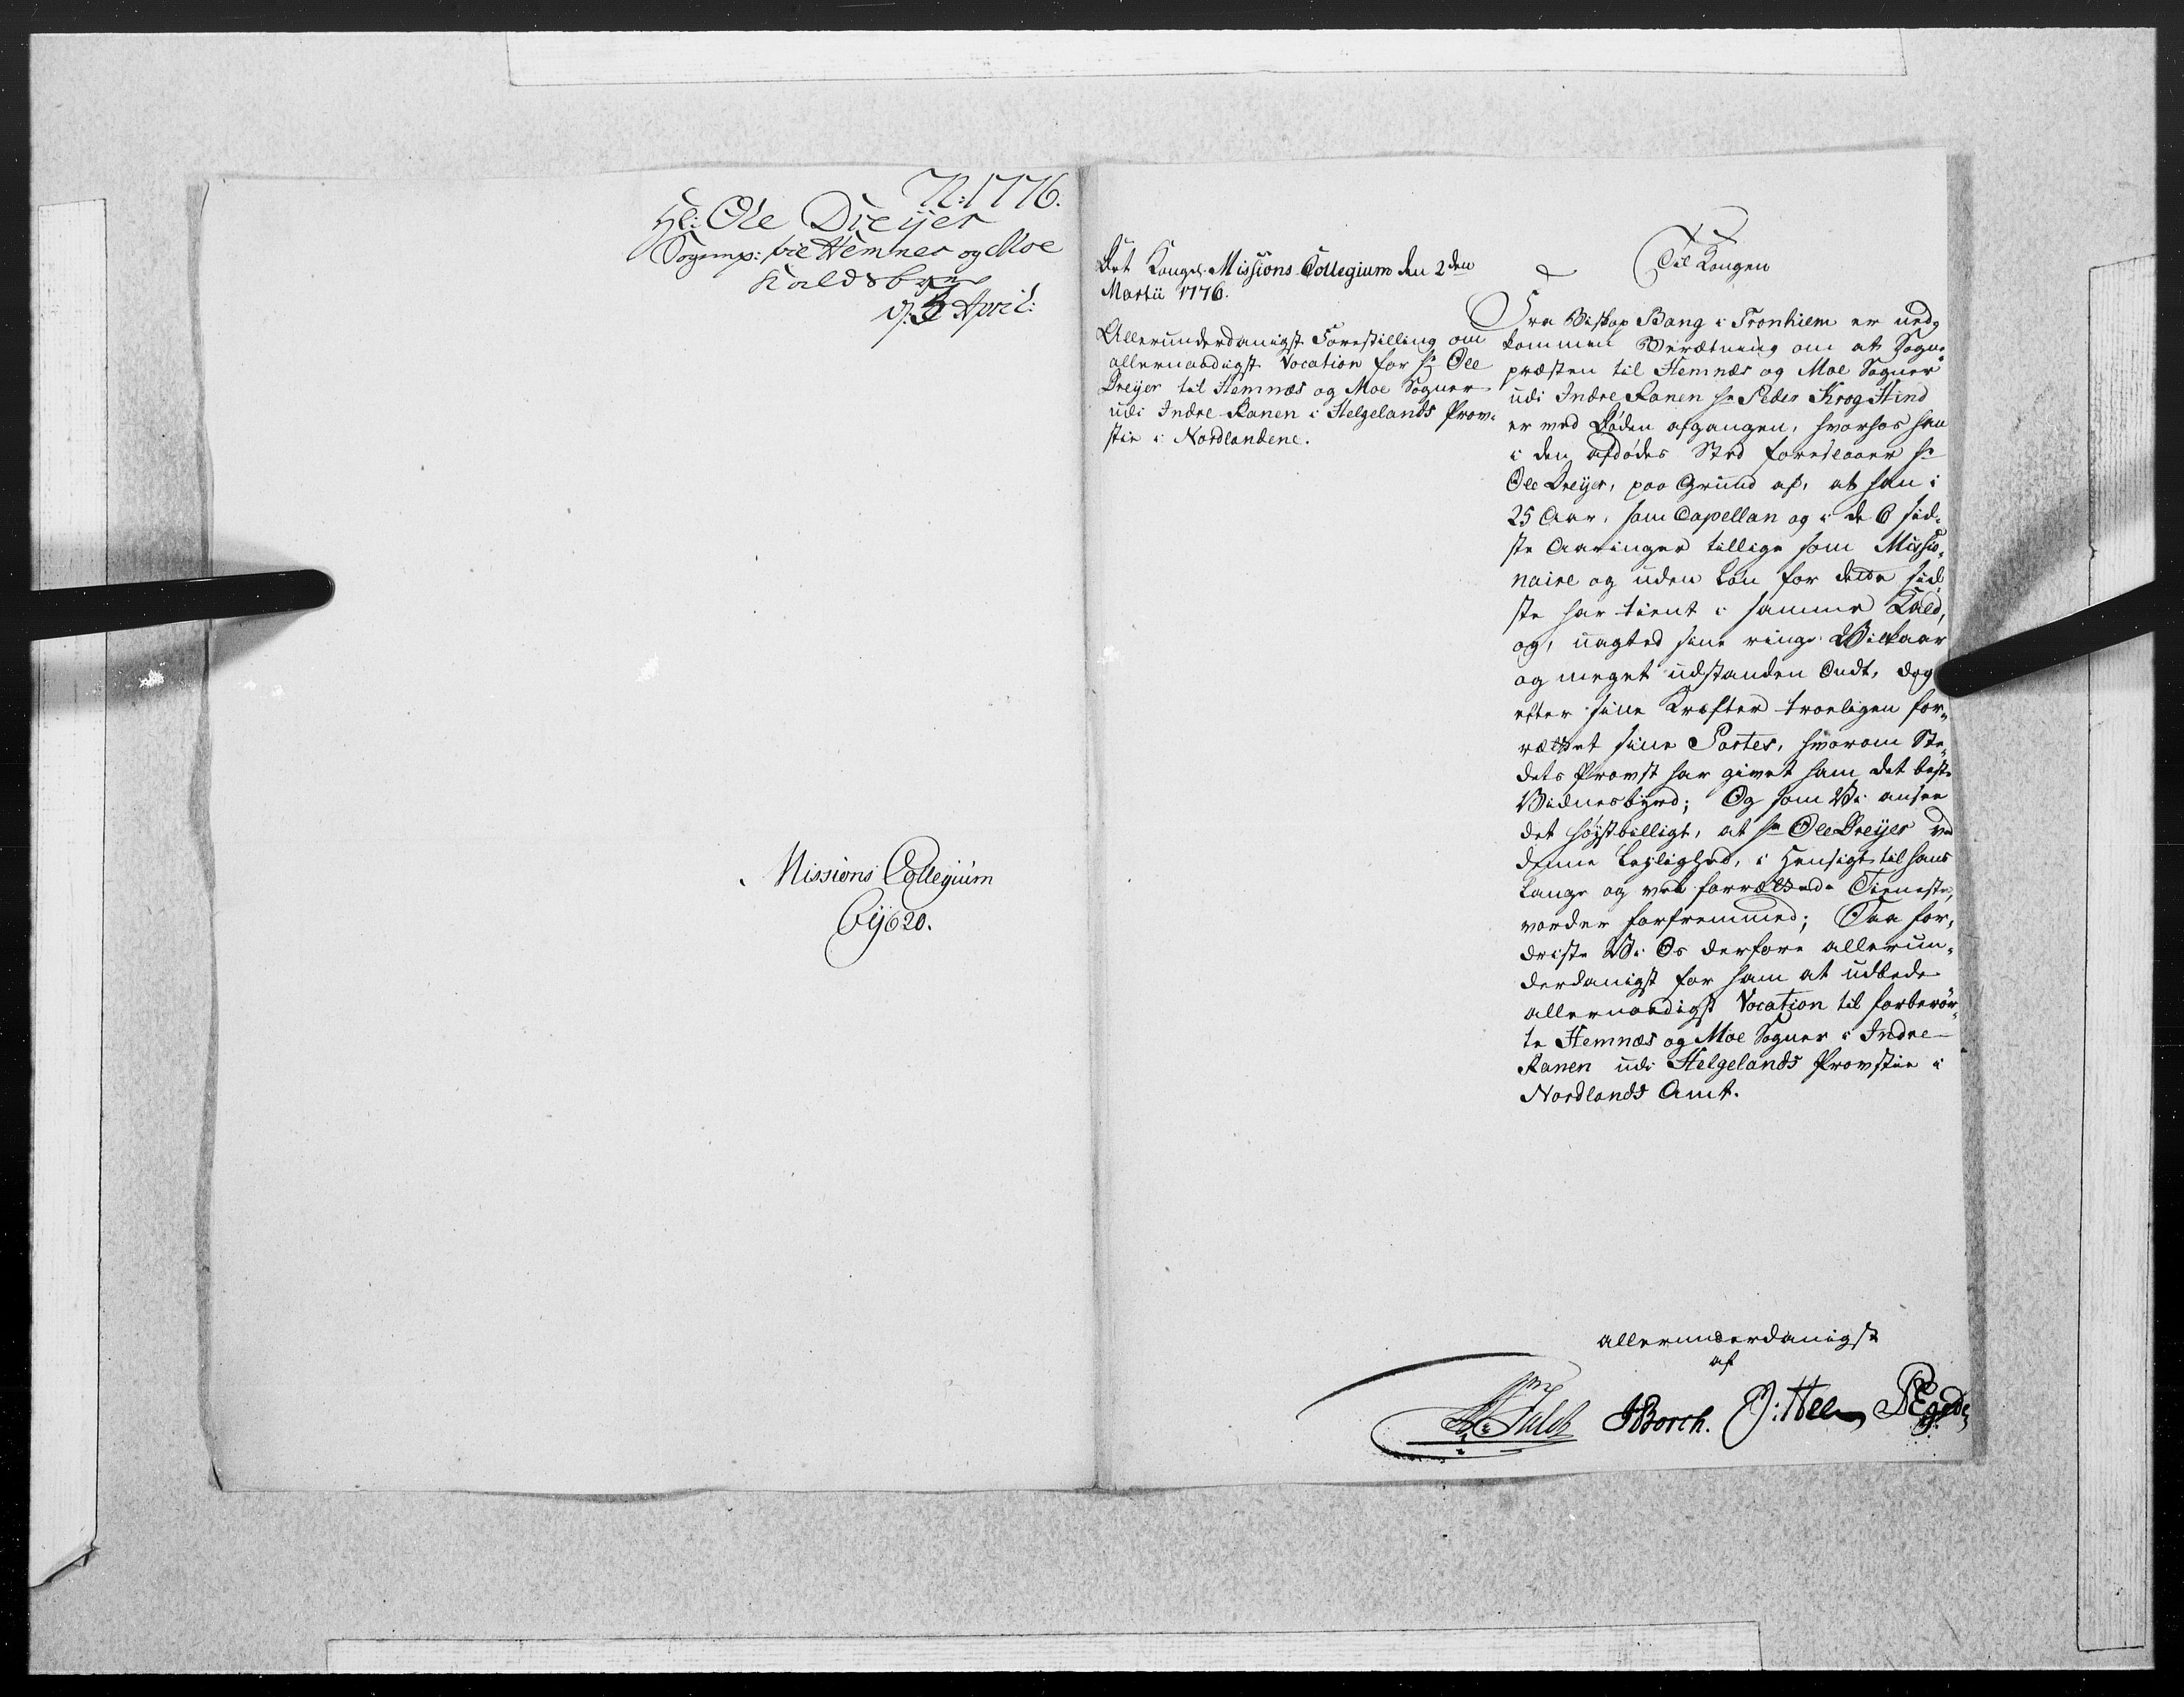 N: 1776.
Hl: Ole Dreijer
Sognep: til Hemnes og Moe
Kaldsbrev
d. 3 April:
Missions Collegium
Cy620.
Det Kongel. Missions-Collegium den 2den
Martii 1776.
Allerunderdanigst Forestilling om
allernaadigst Vocation for Hr Ole
Dreijer til Hemnæs og Moe Sogner
udi Indre Ranen i Helgelands Prov-
stie i Nordlandene.
Til Kongen
Fra Biskop Bang i Tronhiem er ned-
kommen Beretning om at Sogne-
præsten til Hemnæs og Moe Sogner
udi Indre Ranen Hr Peder Krog Hind
er ved Døden afgangen, hvorhos han
i den afdødes Sted foreslaaer Hr
Ole Dreijer, paa Grund af, at han i
25 Aar, som Capellan og i de 6 sid-
ste Aaringer tillige som Missio-
naire og uden Løn for dette sid-
ste har tient i samme Kald,
og, uagted sine ringe Vilkaar
og meget udstanden Ondt, dog
efter sine Kræfter troeligen for-
rættet sine Partes, hvorom Ste-
dets Provst har givet ham det beste
Vidnesbyrd; Og som Vi ansee
det høystbilligt, at Hr Ole Dreijer ved
denne Leylighed, i Hensigt til hans
lange og vel forrættede Tieneste,
vorder forfremmed; Saa for-
driste Vi Os derfore allerun-
derdanigst for ham at udbede
allernaadigst Vocation til forberør-
te Hemnæs og Moe Sogner i Indre
Ranen udi Helgelands Provstie i
Nordlands Amt.
allerunderdanigst
af
Falch JBorch. J: Hee PEgede